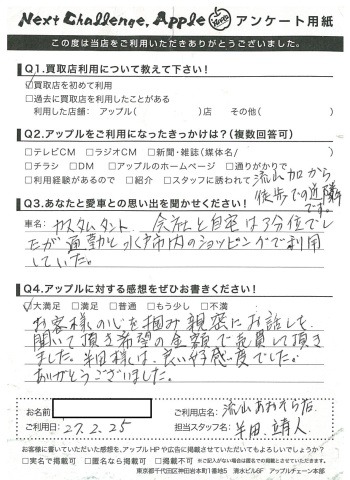 Next Challenge, Apple アンケート用紙
この度は当店をご利用いただきありがとうございました。
Q1.買取店利用について教えて下さい！
☑買取店を初めて利用
□過去に買取店を利用したことがある
利用した店舗：アップル（　　　　）店　その他（　　　　）
Q2.アップルをご利用になったきっかけは？（複数回答可）
□テレビCM　□ラジオCM　□新聞・雑誌（媒体名／　　　　）
□チラシ　□DM　□アップルのホームページ　□通りがかりで
□利用経験があるので　□紹介　□スタッフに誘われて
流山 から
徒歩での近隣
です。
Q3.あなたと愛車との思い出を聞かせください！
車名：カスタムタント. 会社と自宅は3分位でし
たが通勤と水戸市内のショッピングで利用
していた。
Q4.アップルに対する感想をぜひお書きください！
☑大満足　□満足　□普通　□もう少し　□不満
お客様の心を掴み親密にお話しを
聞いて頂き希望の金額で売買して頂き
ました。半田様は、良い好感度でした。
ありがとうございました。
お名前
ご利用日　27.2.25
ご利用店名：流山おおたかの森店
担当スタッフ名：半田 靖人
お客様に書いていただいた感想を、アップルHPや広告に掲載させていただいてもよろしいでしょうか？
□実名で掲載可　□匿名なら掲載可　□掲載不可　※ご記入がない場合は匿名での掲載とさせていただきます。
東京都千代田区神田岩本町1番地5　清水ビル6F　アップルチェーン本部